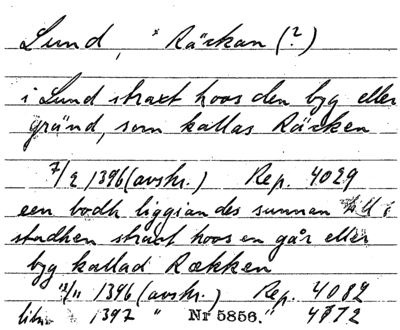 Lund, × Räckan (?)
i Lund straxt hoos den byg eller
gränd, som kallas Räcken
7/2 1396 (avskr.) Rep. 4029
een bodh liggiandes sunnan till i
stadhen straxt hoos en går eller
byg kallad Rækken
12/11 1396 (avskr.) Rep. 4082
1397 " Nr 5856. " 4772